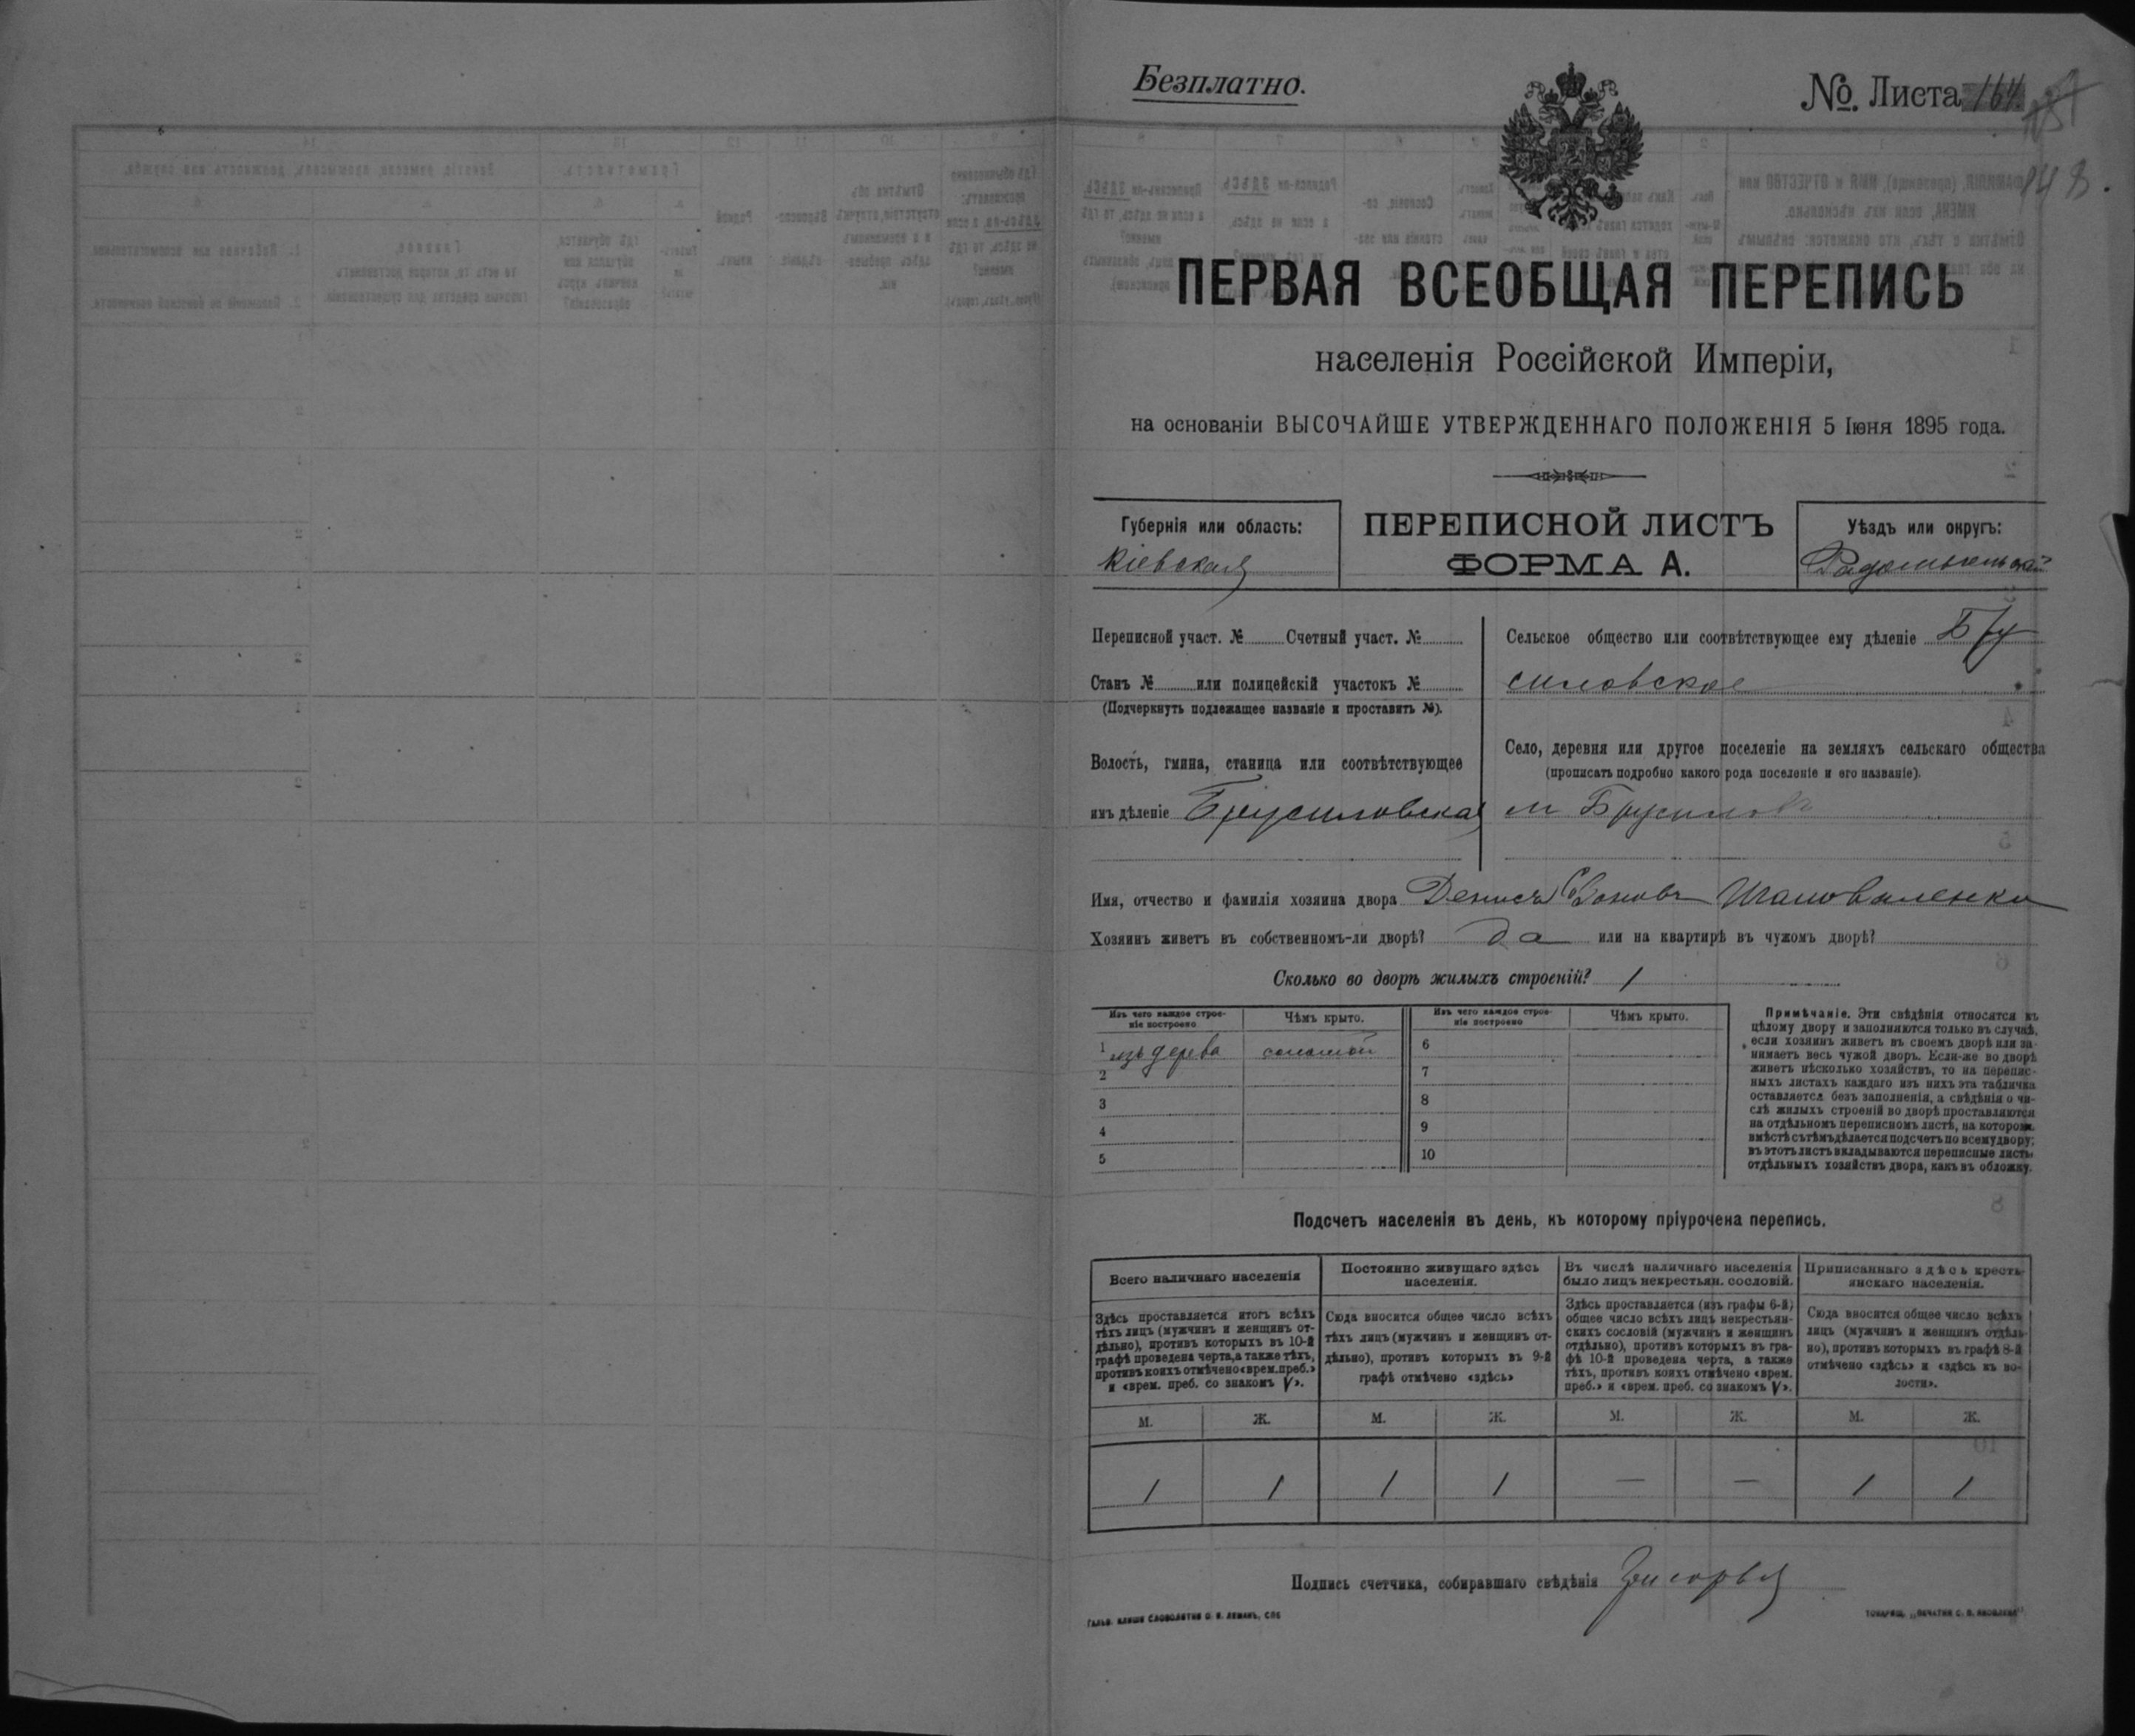 Безплатно.
№. Листа 164
148.
ПЕРВАЯ ВСЕОБЩАЯ ПЕРЕПИСЬ
населенія Россійской Имперіи,
на основаніи ВЫСОЧАЙШЕ УТВЕРЖДЕННАГО ПОЛОЖЕНІЯ 5 Іюня 1895 года.
Губернія или область:
Кіевская
ПЕРЕПИСНОЙ ЛИСТЪ
ФОРМА А.
Уѣздъ или округъ:
Радомысльскій
Переписной участ. № Счетный участ. №
Станъ № или полицейскій участокъ №
(Подчеркнуть подлежащее названіе и проставить №).
Волость, гмина, станица или соотвѣтствующее
имъ дѣленіе Брусиловская
Сельское общество или соотвѣтствующее ему дѣленіе Бру
силовское
Село, деревня или другое поселеніе на земляхъ сельскаго общества
(прописать подробно какого рода поселеніе и его названіе).
м Брусиловъ
Имя, отчество и фамилія хозяина двора Денисъ Шаповаленко
Хозяинъ живетъ въ собственномъ-ли дворѣ? да или на квартирѣ въ чужомъ дворѣ?
Сколько во дворѣ жилыхъ строеній? 1
Изъ чего каждое строе-
ніе построено
Чѣмъ крыто.
Изъ чего каждое строе-
ніе построено
Чѣмъ крыто.
1 изъ дерева соломой 6
2 7
3 8
4 9
5 10
Примѣчаніе. Эти свѣдѣнія относятся къ
цѣлому двору и заполняются только въ случаѣ,
если хозяинъ живетъ въ своемъ дворѣ или за-
нимаетъ весь чужой дворъ. Если-же во дворѣ
живетъ нѣсколько хозяйствъ, то на перепис-
ныхъ листахъ каждаго изъ нихъ эта табличка
оставляется безъ заполненія, а свѣдѣнія о чи-
слѣ жилыхъ строеній во дворѣ проставляются
на отдѣльномъ переписномъ листѣ, на которомъ
вмѣстѣ съ тѣмъ дѣлается подсчетъ по всему двору;
въ этотъ листъ вкладываются переписные листы
отдѣльныхъ хозяйствъ двора, какъ въ обложку.
Подсчетъ населенія въ день, къ которому пріурочена перепись.
Всего наличнаго населенія
Здѣсь проставляется итогъ всѣхъ
тѣхъ лицъ (мужчинъ и женщинъ от-
дѣльно), противъ которыхъ въ 10-й
графѣ проведена черта, а также тѣхъ,
противъ коихъ отмѣчено «врем. преб.»
и «врем. преб. со знакомъ V».
Постоянно живущаго здѣсь
населенія.
Сюда вносится общее число всѣхъ
тѣхъ лицъ (мужчинъ и женщинъ от-
дѣльно), противъ которыхъ въ 9-й
графѣ отмѣчено «здѣсь»
Въ числѣ наличнаго населенія
было лицъ некрестьян. сословій.
Здѣсь проставляется (изъ графы 6-й)
общее число всѣхъ лицъ некрестьян-
скихъ сословій (мужчинъ и женщинъ
отдѣльно), противъ которыхъ въ гра-
фѣ 10-й проведена черта, а также
тѣхъ, противъ коихъ отмѣчено «врем.
преб.» и «врем. преб. со знакомъ V».
Приписаннаго здѣсь кресть-
янскаго населенія.
Сюда вносится общее число всѣхъ
лицъ (мужчинъ и женщинъ отдѣль-
но), противъ которыхъ въ графѣ 8-й
отмѣчено «здѣсь» и «здѣсь къ во-
лости».
М. Ж. М. Ж. М. Ж. М. Ж.
1 1 1 1 — — 1 1
Подпись счетчика, собиравшаго свѣдѣнія
ГАЛЬВ. КЛИШЕ СЛОВОЛИТНИ О. И. ЛЕМАНЪ, СПБ
ТОВАРИЩ. „ПЕЧАТНЯ С. П. ЯКОВЛЕВА“